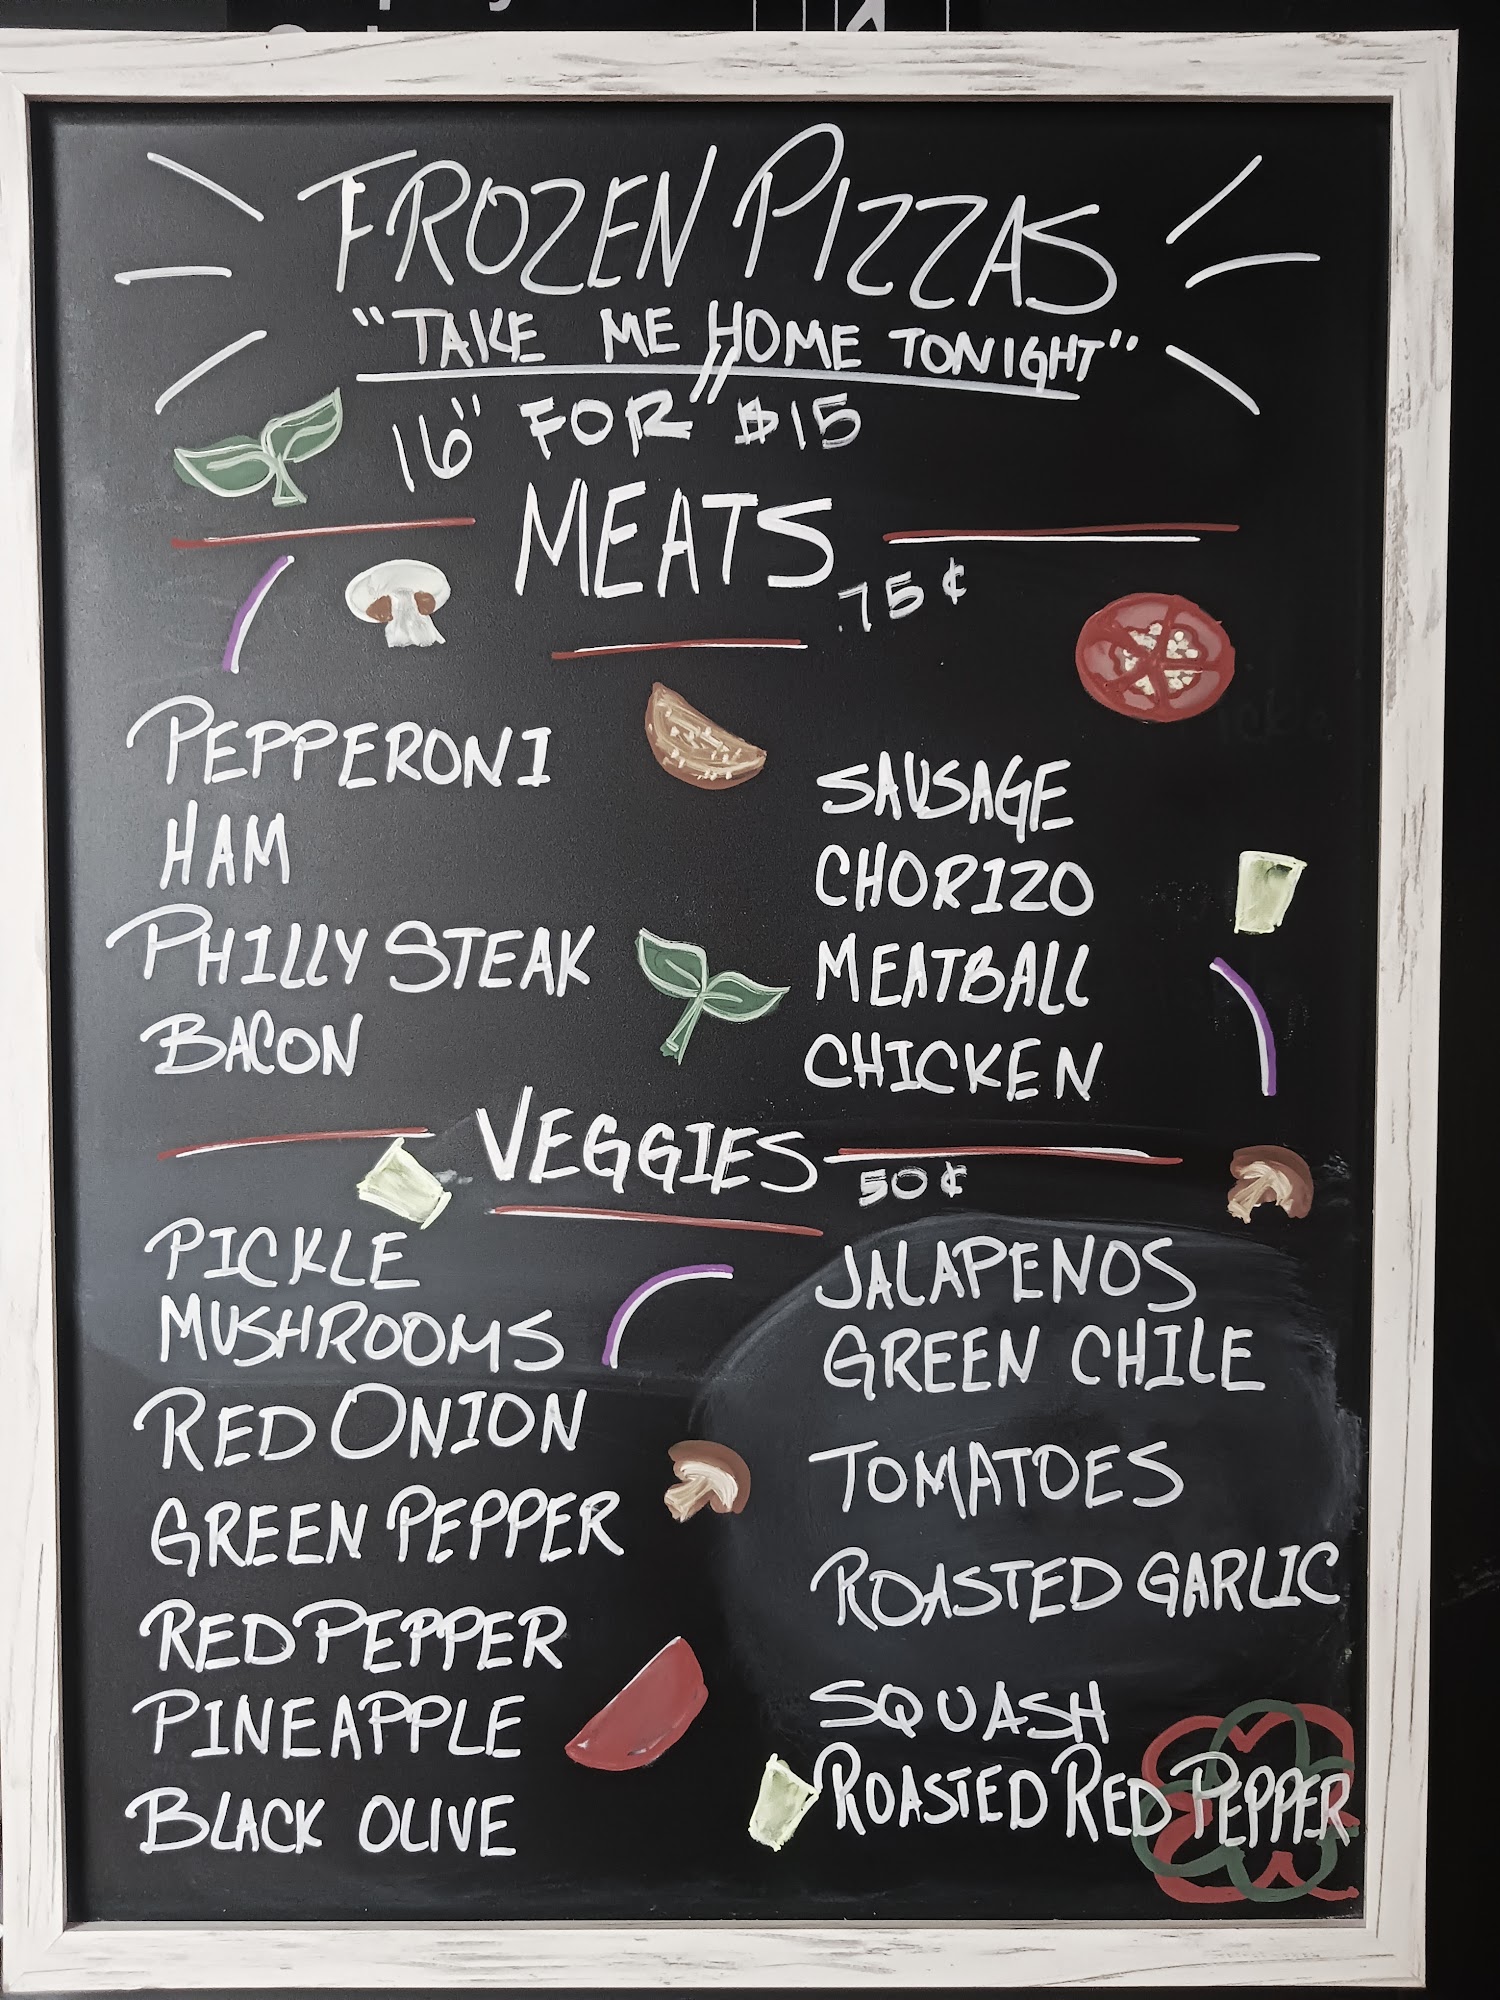 FROZEN PIZZAS
"TAKE ME HOME TONIGHT"
16" FOR $15
MEATS
.75¢
PEPPERONI
HAM
PHILLY STEAK
BACON
SAUSAGE
CHORIZO
MEATBALL
CHICKEN
VEGGIES
50¢
PICKLE
MUSHROOMS
RED ONION
GREEN PEPPER
RED PEPPER
PINEAPPLE
BLACK OLIVE
JALAPENOS
GREEN CHILE
TOMATOES
ROASTED GARLIC
SQUASH
ROASTED RED PEPPER